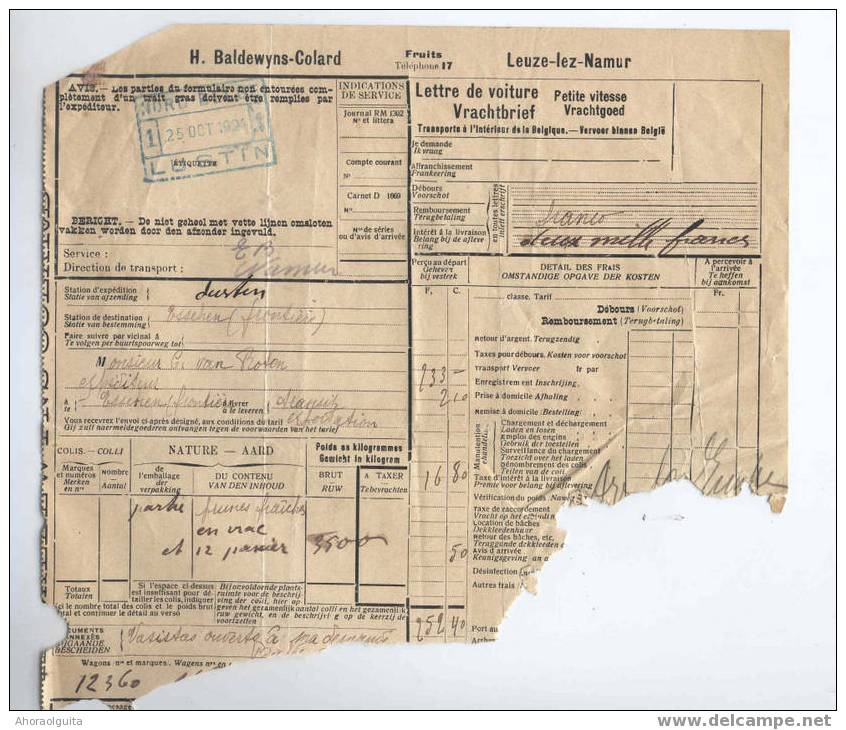 H. Baldewyns-Colard
Fruits
Téléphone 17
Leuze-lez-Namur
AVIS.— Les parties du formulaire non entourées com-
plètement d'un trait gras doivent être remplies par
l'expéditeur.
NORD
1 25 OCT 1924 1
LUSTIN
ÉTIQUETTE
BERICHT.— De niet geheel met vette lijnen omsloten
vakken worden door den afzender ingevuld.
Service :
Direction de transport :
Namur
INDICATIONS
DE SERVICE
Journal RM 1302
Nº et littera
Compte courant
Nº
Carnet D 1669
Nº
Nº de séries
ou d'avis d'arrivée
Lettre de voiture
Vrachtbrief
Petite vitesse
Vrachtgoed
Transports à l'intérieur de la Belgique.—Vervoer binnen België
Je demande
Ik vraag
Affranchissement
Frankeering
Débours
Voorschot
Remboursement
Terugbetaling
Intérêt à la livraison
Belang bij de aflevering
en toutes lettres
inlett erschrift
franco
deux mille francs
Station d'expédition
Statie van afzending
Lustin
Station de destination
Statie van bestemming
Esschen (frontière)
Faire suivre par vicinal à
Te volgen per buurtspoorweg tot
Monsieur C. van
expéditeur
à
te
Esschen frontière
à livrer
à leveren
transit
exportation
Vous recevrez l'envoi ci-après désigné, aux conditions du tarif
Gij zult naermeldegoederen ontvangen tegen de voorwaarden van het tarief
COLIS. — COLLI
NATURE — AARD
Poids en kilogrammes
Gewicht in kilogram
Marques
et numéros
Merken
en nrs
Nombre
Aantal
de l'emballage
der
verpakking
DU CONTENU
VAN DEN INHOUD
BRUT
RUW
A TAXER
Te bevrachten
prunes fraîches
en vrac
et 12 panier
3500
Totaux
Totalen
Si l'espace ci-dessus
est insuffisant pour dé-
tailler les colis, indi-
quer ici le nombre total des colis et le poids brut
total et continuer le détail au verso
Bij onvoldoende plaats-
ruimte voor de beschrijv-
ing der colli, hier op-
geven het gezamenlijk aantal colli en het gezamenlijk
ruw gewicht, en de beschrijving op de keerzijde
voortzetten
DOCUMENTS
ANNEXÉS
BIJGAANDE
BESCHEIDEN
Vasistas ouverts à ma demande
Wagons nos et marques. Wagens nrs en
12360
Perçu au départ
Geheven
bij vestrek
F. C.
DÉTAIL DES FRAIS
OMSTANDIGE OPGAVE DER KOSTEN
A percevoir à
l'arrivée
Te heffen
bij aankomst
Fr.
classe. Tarif
Débours (Voorschot)
Remboursement (Terugbetaling)
Retour d'argent. Terugzendig
Taxes pour débours. Kosten voor voorschot
233 — Transport Vervoer fr par
Enregistrement Inschrijving
2 10 Prise à domicile Afhaling
Remise à domicile : Bestelling
Manutention
Behandeling
Chargement et déchargement
Laden en lossen
Emploi des engins
Gebruik der toestellen
Surveillance du chargement
Toezicht over het laden
Dénombrement des colis
Tellen van de colli
16 80 Taxe d'intérêt à la livraison
Premie voor belang bij aflevering
Vérification du poids. Naw
Taxe de raccordement
Vracht op het
Location de bâches
Dekkleedenhuur
Retour des bâches, etc.
Teruggande dekkleeden
50 Avis d'arrivée
Kennisgeving van
Désinfection
Autres frais
252 40 Port au
Ahoraolguita
www.delcampe.net